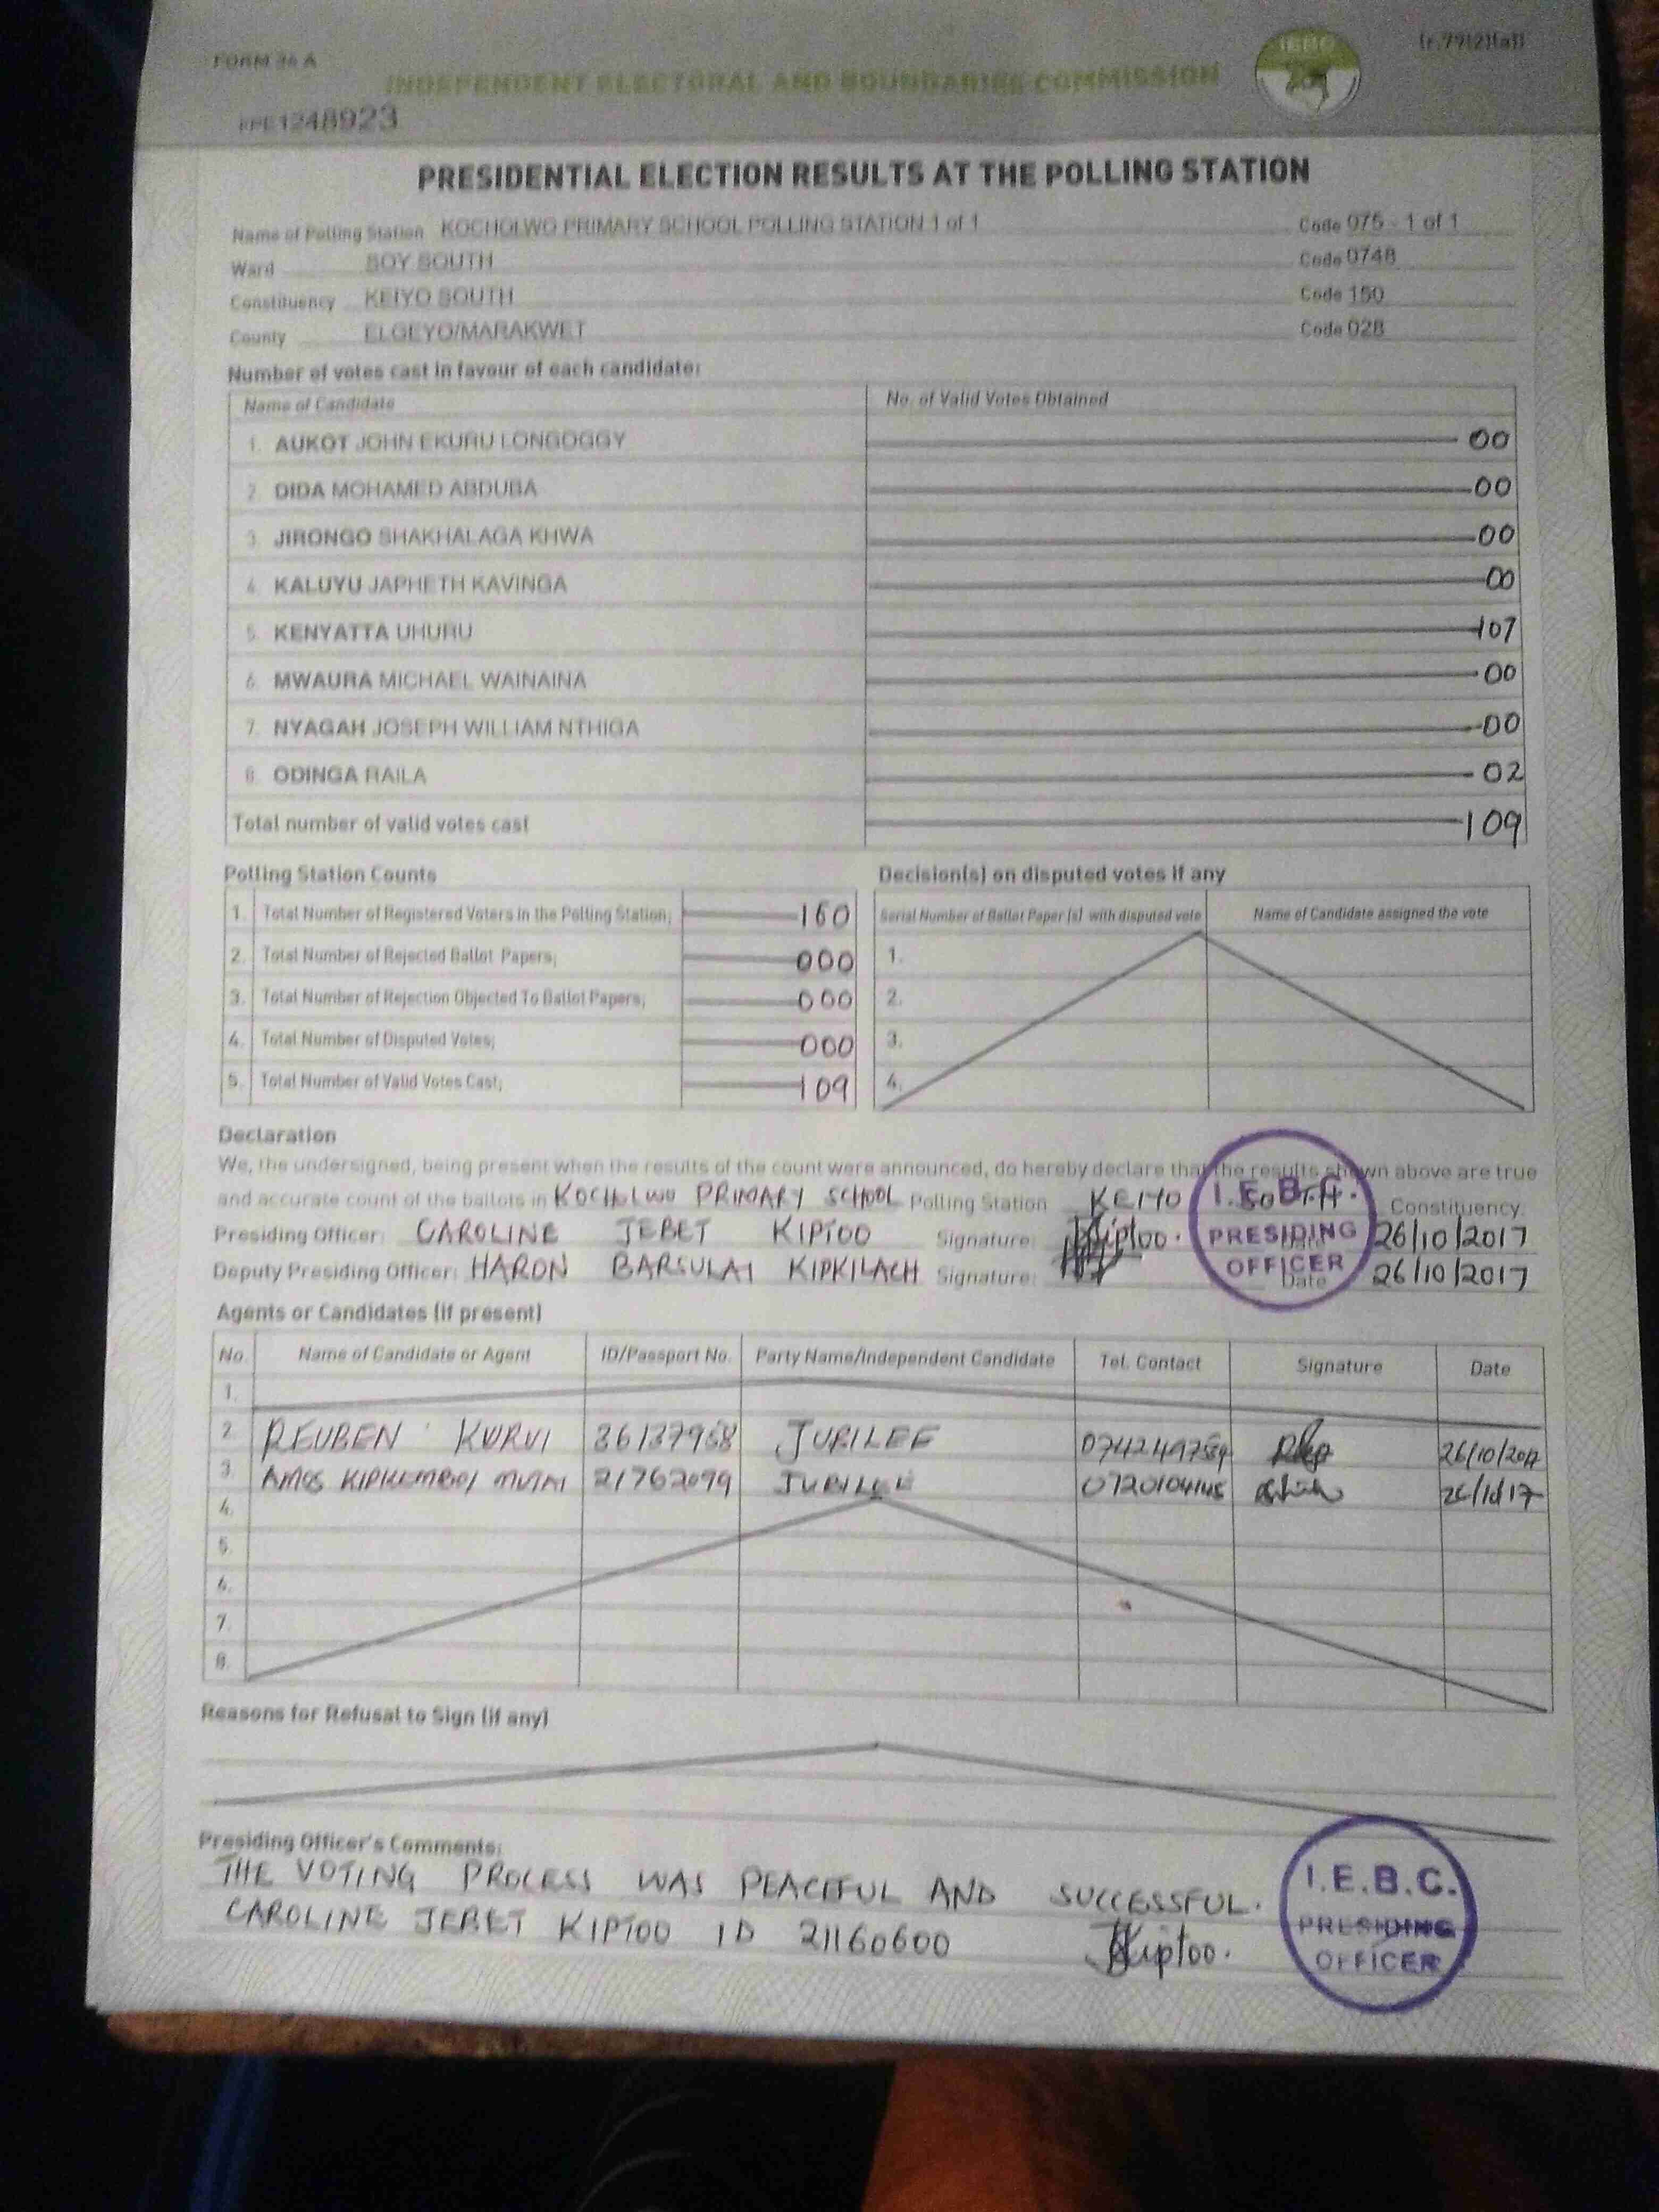 FORM 34 A
(r.79(2)(a))
INDEPENDENT ELECTORAL AND BOUNDARIES COMMISSION
IEBC
1248923
PRESIDENTIAL ELECTION RESULTS AT THE POLLING STATION
Name of Polling Station KOCHOLWO PRIMARY SCHOOL POLLING STATION 1 of 1 Code 075 - 1 of 1
Ward SOY SOUTH Code 0748
Constituency KEIYO SOUTH Code 150
County ELGEYO/MARAKWET Code 028
Number of votes cast in favour of each candidate:
Name of Candidate No. of Valid Votes Obtained
1. AUKOT JOHN EKURU LONGOGGY 00
2. DIDA MOHAMED ABDUBA 00
3. JIRONGO SHAKHALAGA KHWA 00
4. KALUYU JAPHETH KAVINGA 00
5. KENYATTA UHURU 107
6. MWAURA MICHAEL WAINAINA 00
7. NYAGAH JOSEPH WILLIAM NTHIGA 00
8. ODINGA RAILA 02
Total number of valid votes cast 109
Polling Station Counts
1. Total Number of Registered Voters in the Polling Station; 160
2. Total Number of Rejected Ballot Papers; 000
3. Total Number of Rejection Objected To Ballot Papers; 000
4. Total Number of Disputed Votes; 000
5. Total Number of Valid Votes Cast; 109
Decision(s) on disputed votes if any
Serial Number of Ballot Paper (s) with disputed vote Name of Candidate assigned the vote
1.
2.
3.
4.
Declaration
We, the undersigned, being present when the results of the count were announced, do hereby declare that the results shown above are true
and accurate count of the ballots in KOCHLWO PRIMARY SCHOOL Polling Station KEIYO SOUTH Constituency.
Presiding Officer: CAROLINE JEBET KIPTOO Signature: Kiptoo. Date 26/10/2017
Deputy Presiding Officer: HARON BARSULAI KIPKILACH Signature: Date 26/10/2017
I.E.B.C.
PRESIDING
OFFICER
Agents or Candidates (if present)
No. Name of Candidate or Agent ID/Passport No. Party Name/Independent Candidate Tel. Contact Signature Date
1.
2. REUBEN KURUI 36137958 JUBILEE 26/10/2017
3. AMOS KIPKEMBOI MUTAI 21762099 JUBILEE 0720104145 26/10/17
4.
5.
6.
7.
8.
Reasons for Refusal to Sign (if any)
Presiding Officer's Comments:
THE VOTING PROCESS WAS PEACEFUL AND SUCCESSFUL.
CAROLINE JEBET KIPTOO ID 21160600 Kiptoo.
I.E.B.C.
PRESIDING
OFFICER